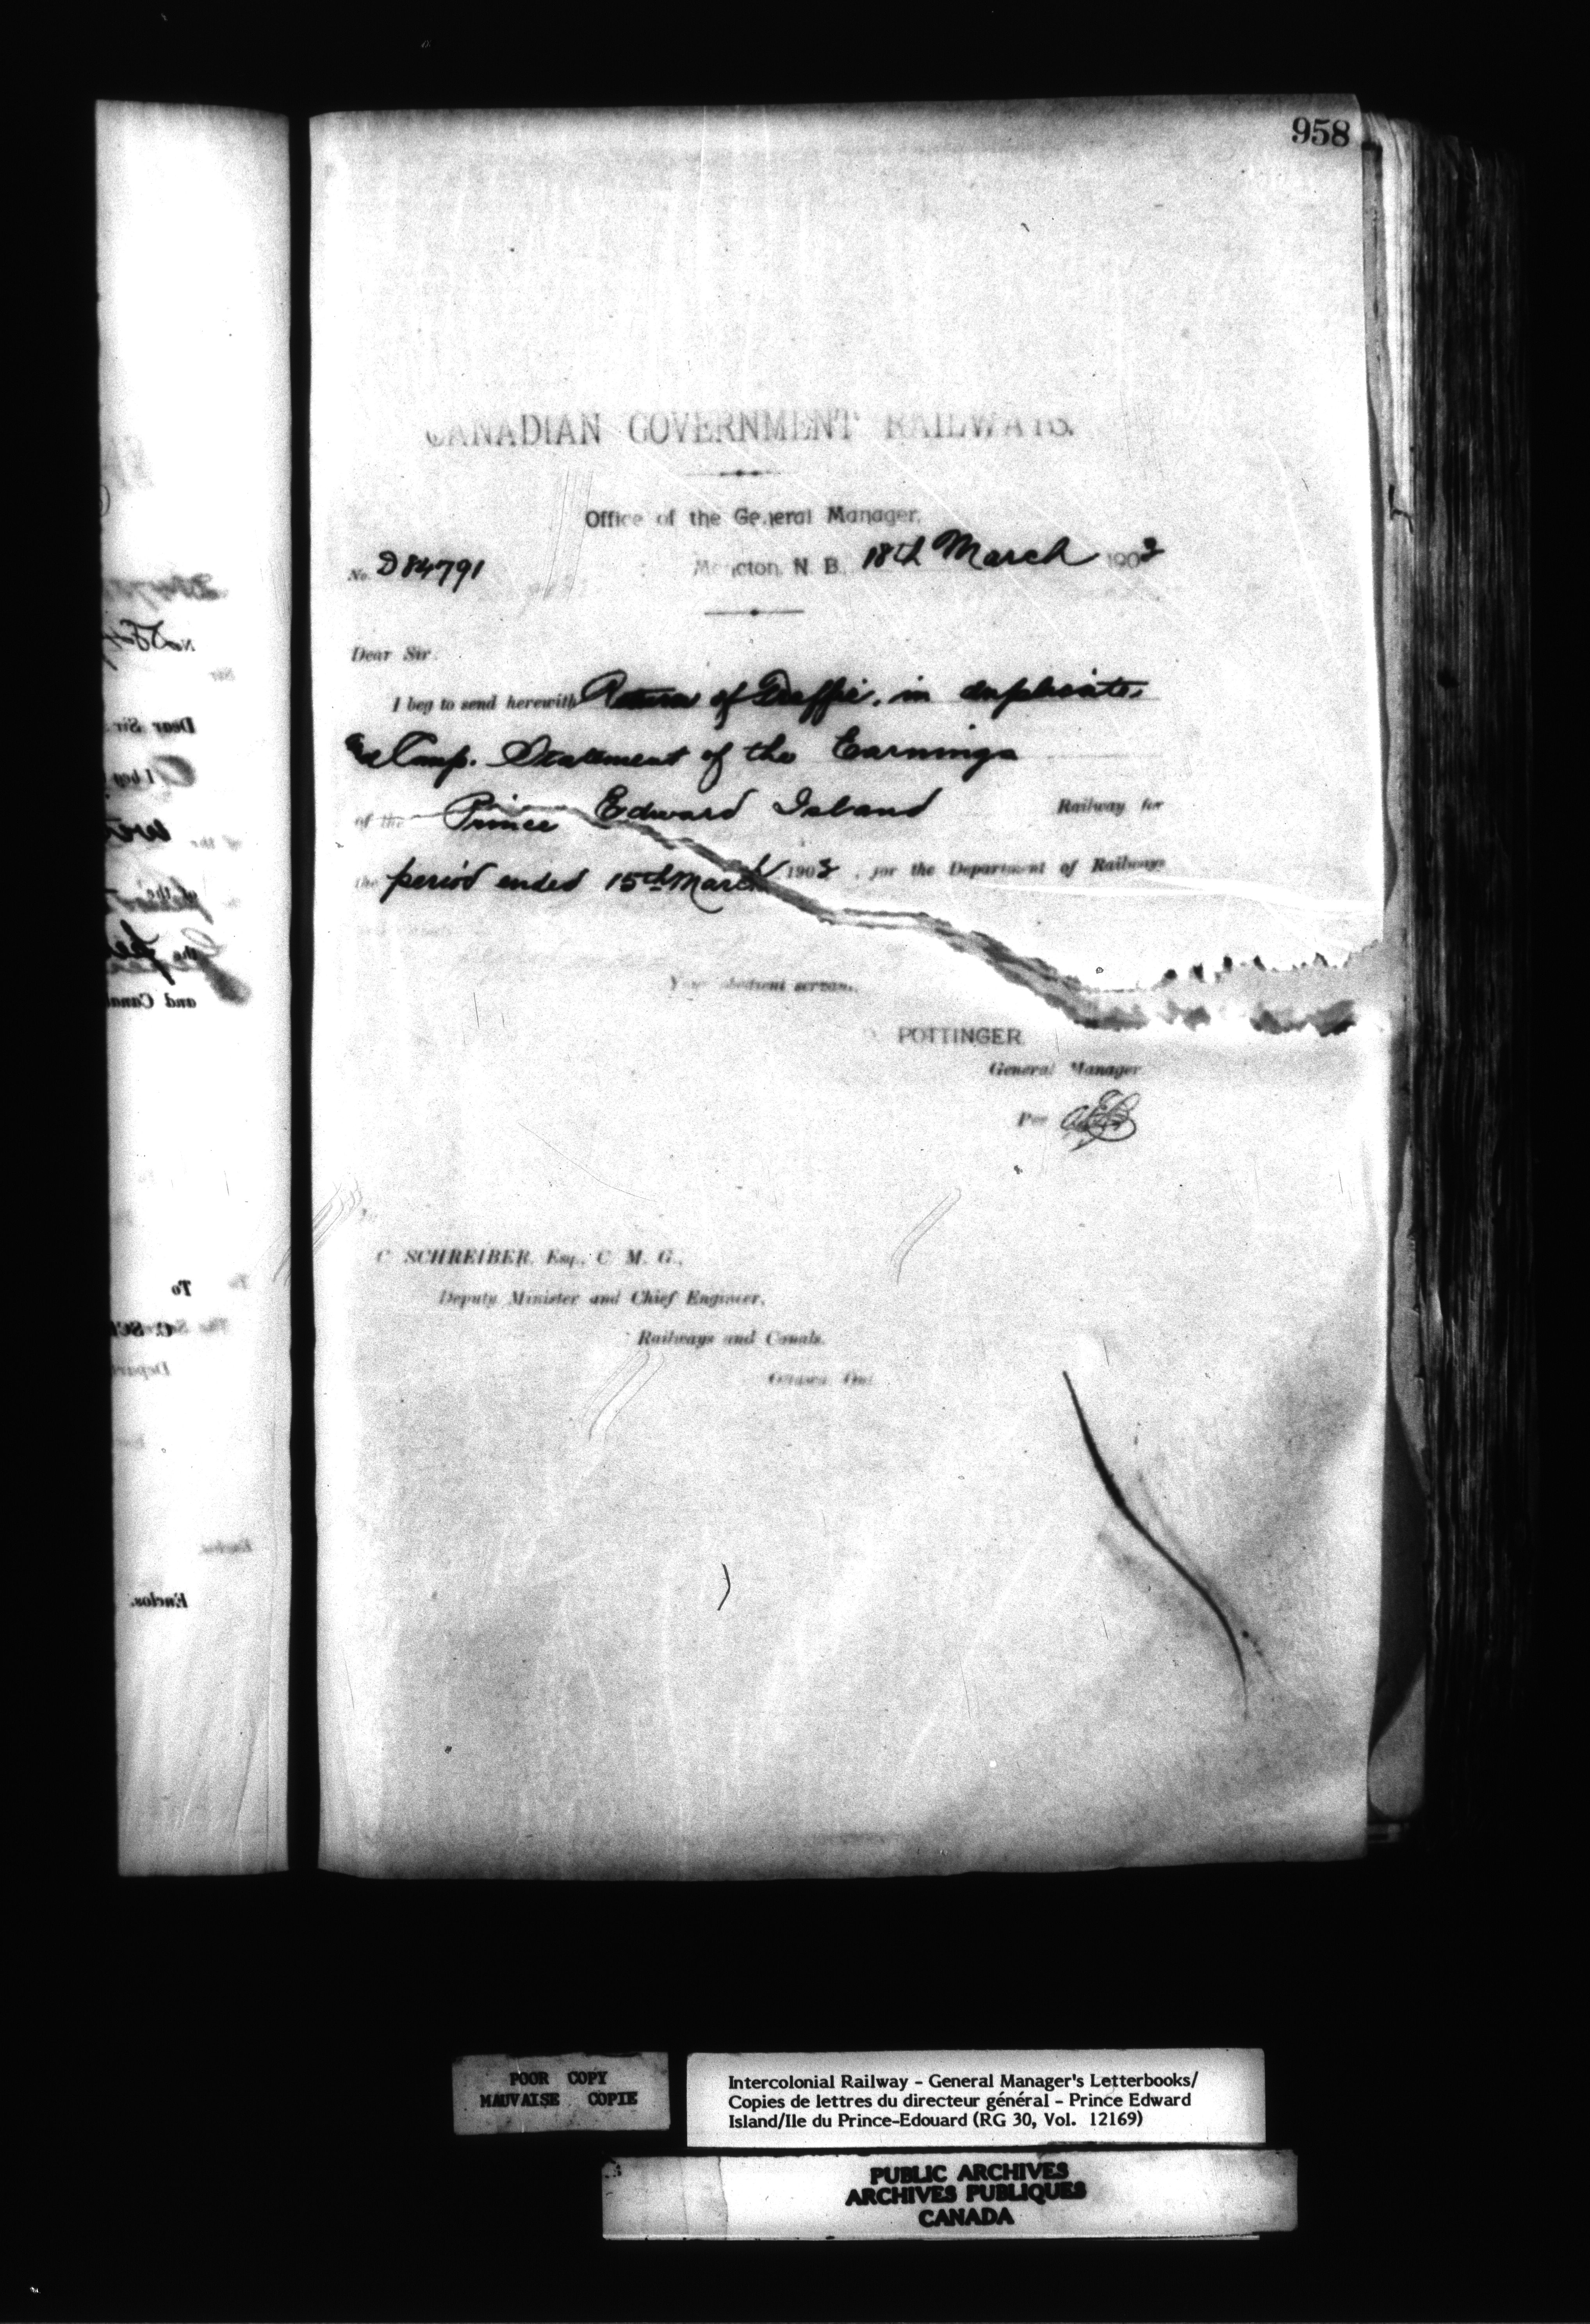 958
CANADIAN GOVERNMENT RAILWAYS.
Office of the General Manager,
No. D84791 Moncton, N. B., 18th March 1903
Dear Sir.
I beg to send herewith Return of Traffic, in duplicate,
and Comp. Statement of the Earnings
of the Prince Edward Island Railway for
the period ended 15th March 1903, for the Department of Railways
Your obedient servant,
POTTINGER
General Manager
Per
C SCHREIBER, Esq., C. M. G.,
Deputy Minister and Chief Engineer,
Railways and Canals.
Ottawa, Ont
Dear Sir
and Cana
To
Enclos.
POOR COPY
MAUVAISE COPIE
Intercolonial Railway - General Manager's Letterbooks/
Copies de lettres du directeur général - Prince Edward
Island/Ile du Prince-Edouard (RG 30, Vol. 12169)
PUBLIC ARCHIVES
ARCHIVES PUBLIQUES
CANADA